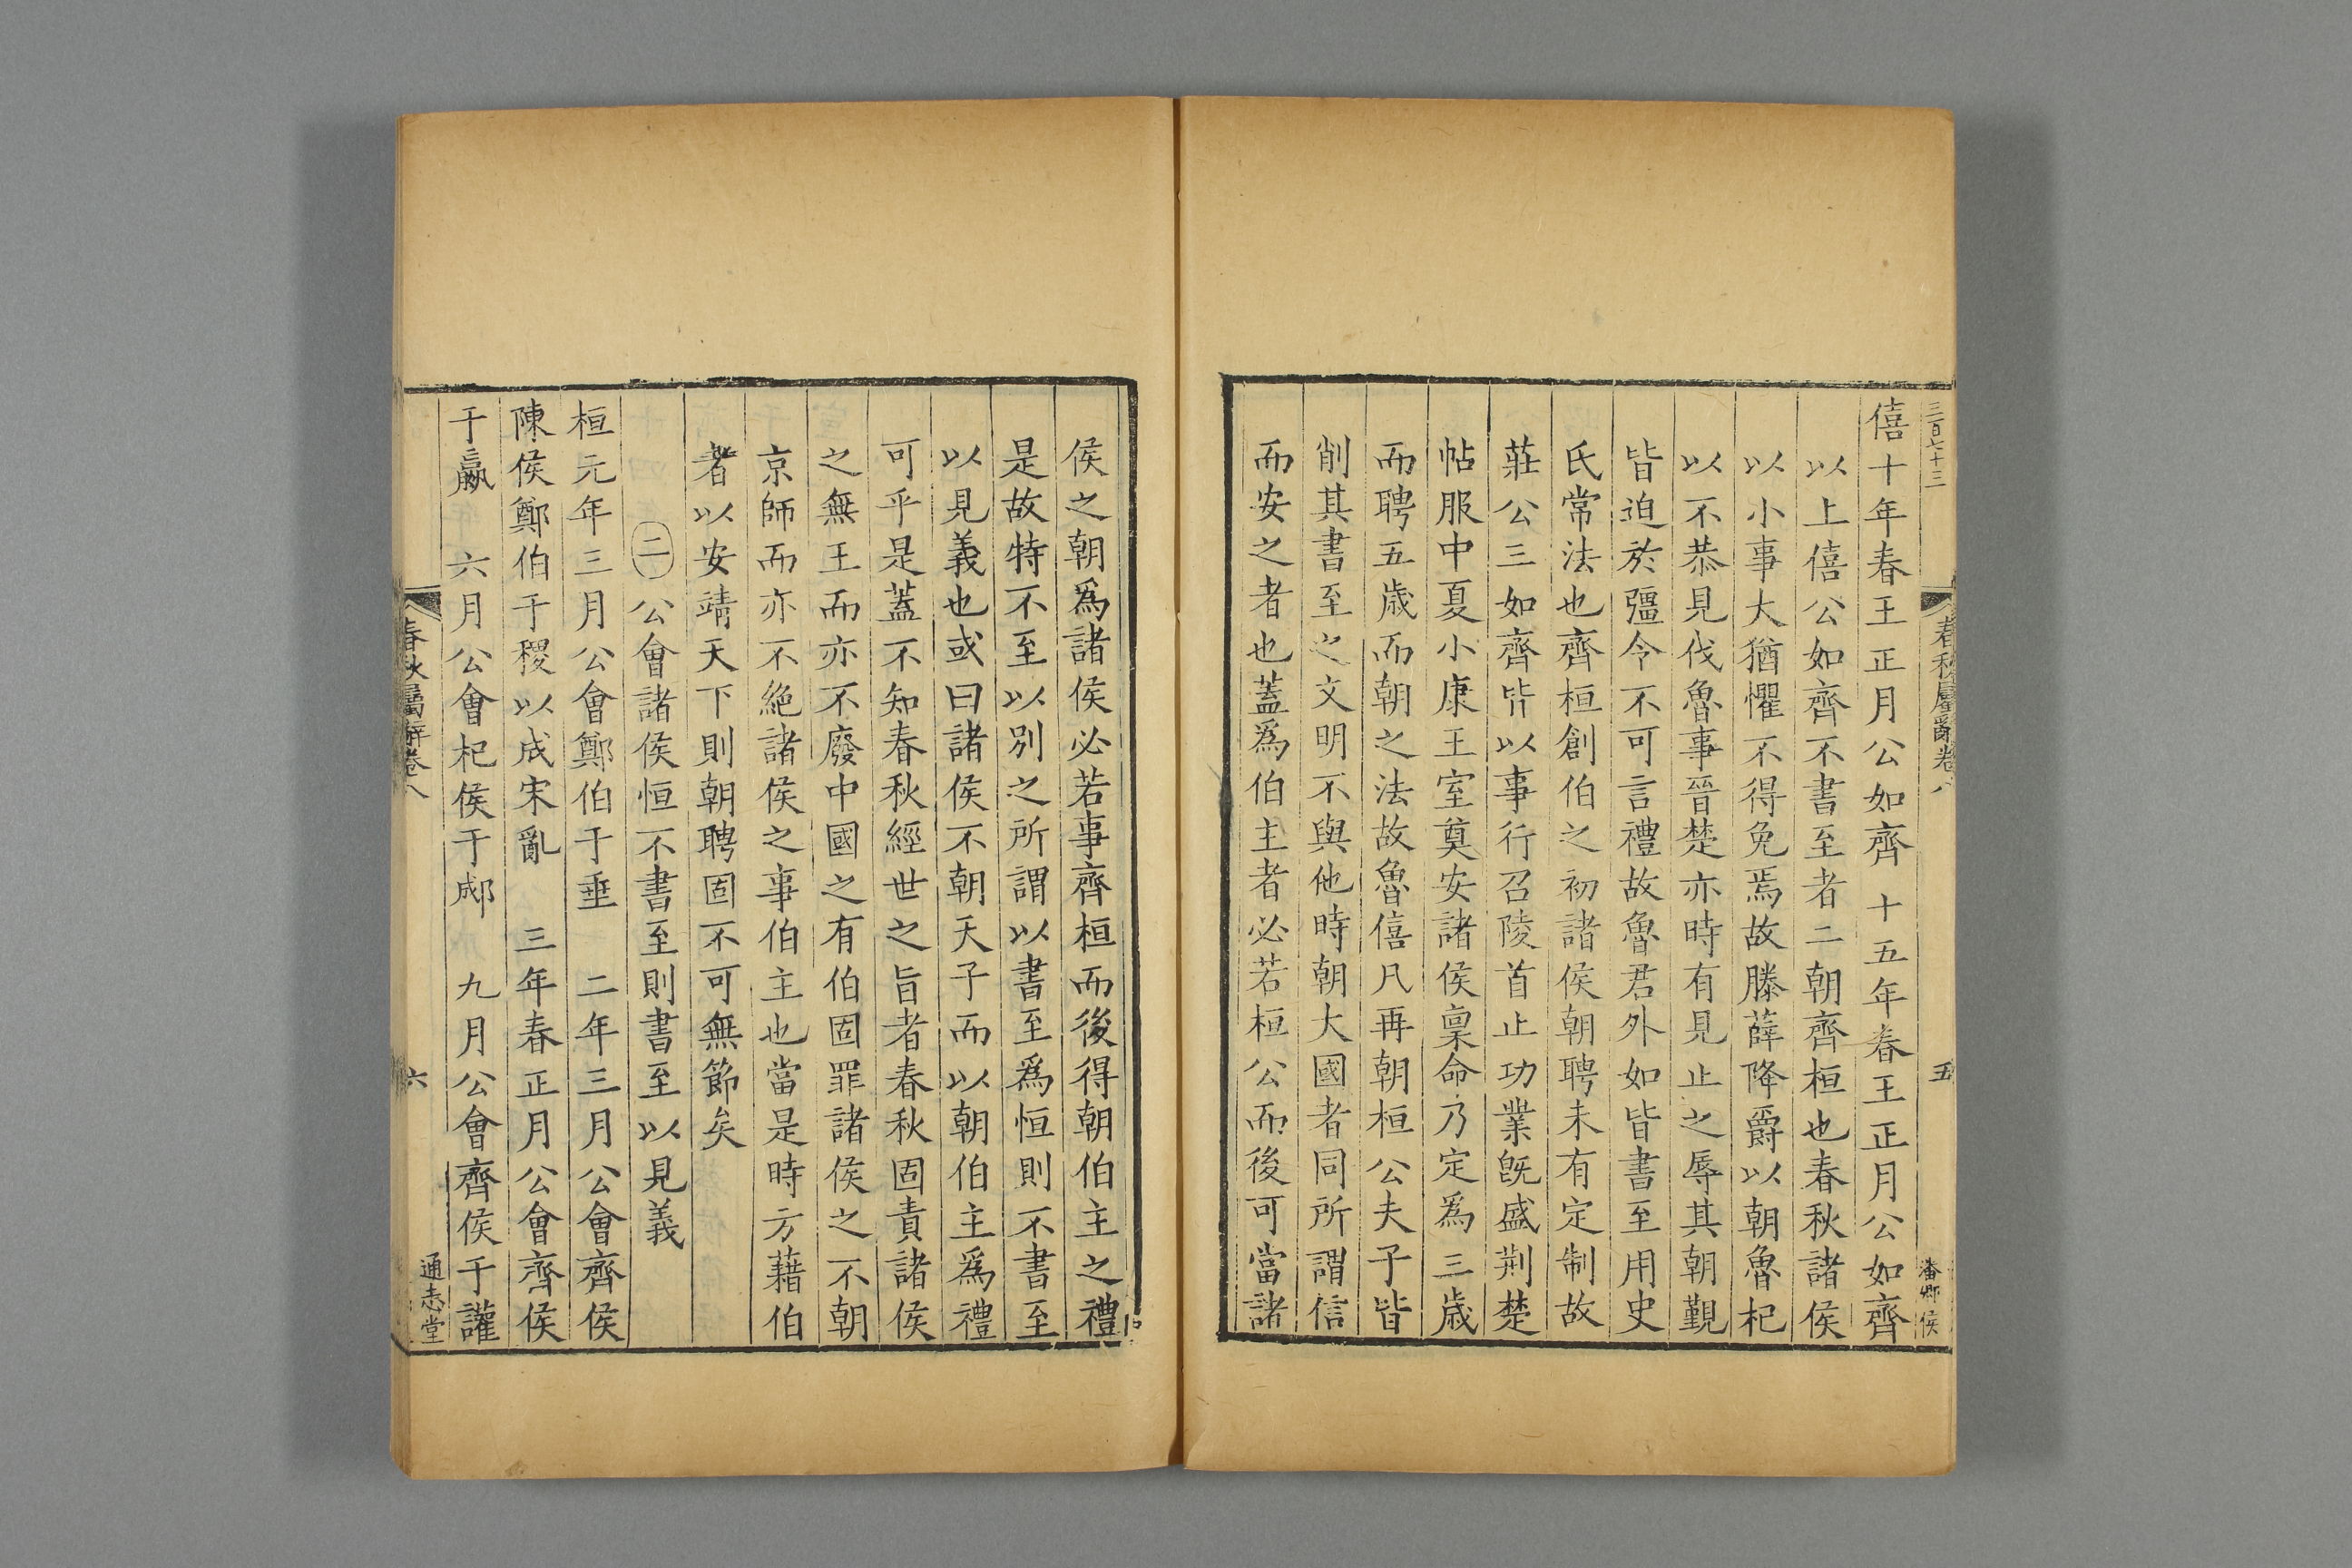 三百七十三
春秋屬辭卷八
五
潘卿侯
僖十年春王正月公如齊 十五年春王正月公如齊
以上僖公如齊不書至者二朝齊桓也春秋諸侯
以小事大猶懼不得免焉故滕薛降爵以朝魯杞
以不恭見伐魯事晉楚亦時有見止之辱其朝覲
皆迫於彊令不可言禮故魯君外如皆書至用史
氏常法也齊桓創伯之初諸侯朝聘未有定制故
莊公三如齊皆以事行召陵首止功業旣盛荆楚
帖服中夏小康王室奠安諸侯稟命乃定爲三歲
而聘五歲而朝之法故魯僖凡再朝桓公夫子皆
削其書至之文明不與他時朝大國者同所謂信
而安之者也蓋爲伯主者必若桓公而後可當諸
侯之朝爲諸侯必若事齊桓而後得朝伯主之禮
是故特不至以別之所謂以書至爲恒則不書至
以見義也或曰諸侯不朝天子而以朝伯主爲禮
可乎是蓋不知春秋經世之旨者春秋固責諸侯
之無王而亦不廢中國之有伯固罪諸侯之不朝
京師而亦不絕諸侯之事伯主也當是時方藉伯
者以安靖天下則朝聘固不可無節矣
二公會諸侯恒不書至則書至以見義
桓元年三月公會鄭伯于垂 二年三月公會齊侯
陳侯鄭伯于稷以成宋亂 三年春正月公會齊侯
于嬴 六月公會杞侯于郕 九月公會齊侯于讙
春秋屬辭卷八
六
通志堂